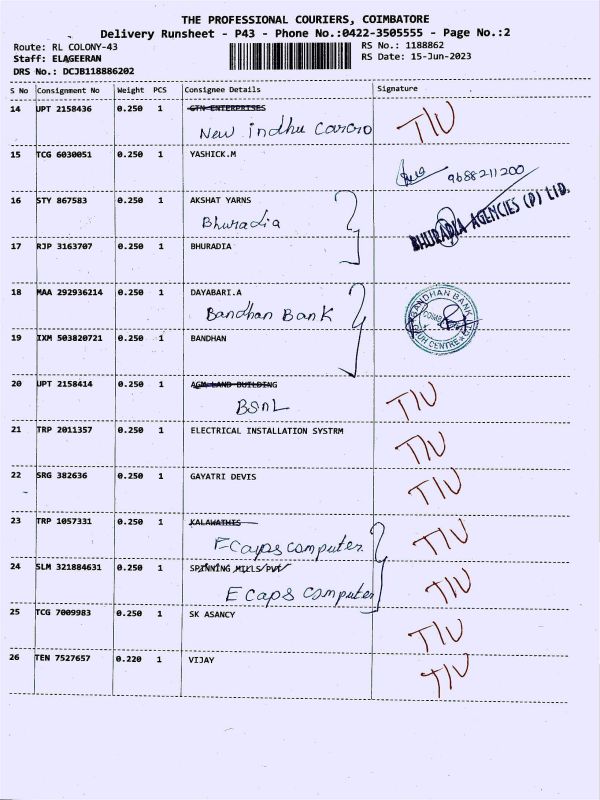 THE PROFESSIONAL COURIERS, COIMBATORE
Delivery Runsheet - P43 - Phone No.:0422-3505555 - Page No.:2
Route: RL COLONY-43 RS No.: 1188862
Staff: ELAGEERAN RS Date: 15-Jun-2023
DRS No.: DCJB118886202
S No Consignment No Weight PCS Consignee Details Signature
14 UPT 2158436 0.250 1 GTN ENTERPRISES
New Indhu T/U
15 TCG 6030051 0.250 1 YASHICK.M
9688211200
16 STY 867583 0.250 1 AKSHAT YARNS
Bhuradia BHURADIA AGENCIES (P) LTD.
17 RJP 3163707 0.250 1 BHURADIA
18 MAA 292936214 0.250 1 DAYABARI.A
Bandhan Bank BANDHAN BANK
19 IXM 503820721 0.250 1 BANDHAN CENTRE
20 UPT 2158414 0.250 1 AGM LAND BUILDING
BSNL T/U
21 TRP 2011357 0.250 1 ELECTRICAL INSTALLATION SYSTRM T/U
22 SRG 382636 0.250 1 GAYATRI DEVIS T/U
23 TRP 1057331 0.250 1 KALAWATHIS T/U
Ecaps computer
24 SLM 321884631 0.250 1 SPINNING MILLS/PVT T/U
Ecaps computer
25 TCG 7009983 0.250 1 SK ASANCY T/U
26 TEN 7527657 0.220 1 VIJAY T/U